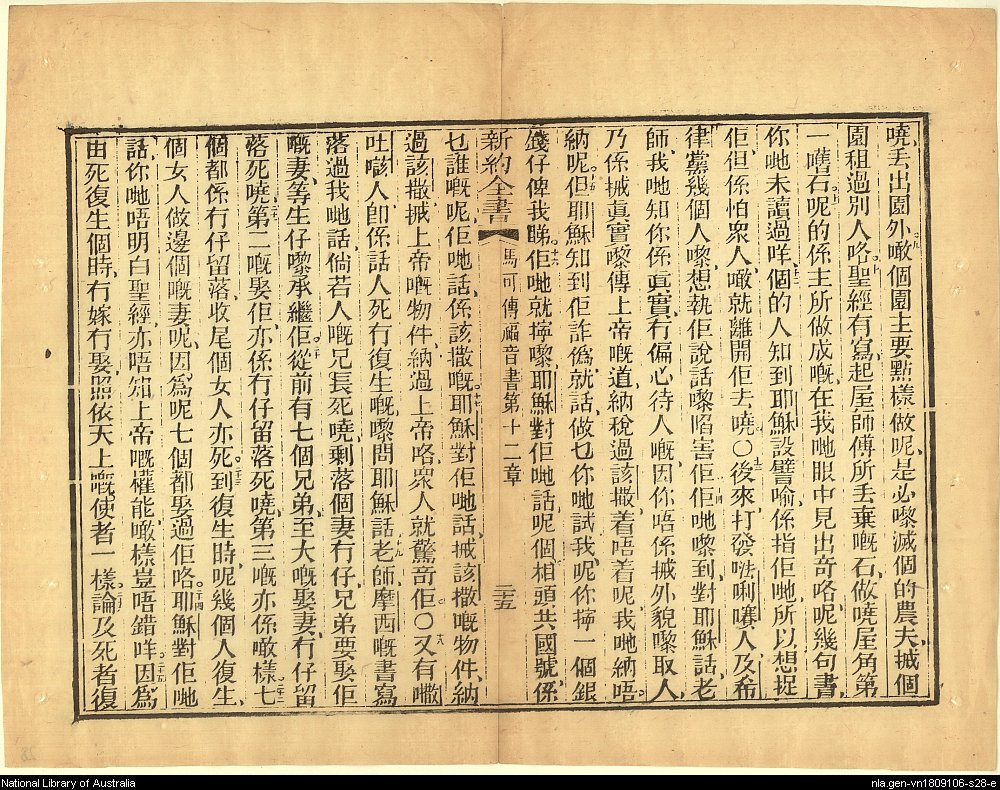 嘵、丟出園外、噉個園主要點樣做呢、是必嚟滅個的農夫、搣個
園租過別人咯、聖經有寫、起屋師傅所丟棄嘅石、做嘵屋角第
一嚿石、呢的係主所做成嘅、在我哋眼中見出奇咯、呢幾句書、
你哋未讀過咩、個的人知到耶穌設譬喻、係指佢哋、所以想捉
佢、但係怕衆人、噉就離開佢去嘵○後來打發𠵽唎㘔人、及希
律黨幾個人嚟、想執佢說話嚟陷害佢、佢哋嚟到、對耶穌話、老
師、我哋知你係眞實、冇偏心待人嘅、因你唔係搣外貌嚟取人、
乃係搣眞實嚟傳上帝嘅道、納稅過該撒、着唔着呢、我哋納唔
納呢、但耶穌知到佢詐僞、就話、做乜你哋試我呢、你擰一個銀
錢仔俾我睇、佢哋就擰嚟、耶穌對佢哋話、呢個相頭共國號、係
新約全書 馬可傳福音書第十二章 二十五
乜誰嘅呢、佢哋話、係該撒嘅、耶穌對佢哋話、搣該撒嘅物件、納
過該撒、搣上帝嘅物件、納過上帝咯、衆人就驚奇佢○又有㘔
吐㗋人、卽係話人死冇復生嘅、嚟問耶穌、話、老師、摩西嘅書寫
落過我哋話、倘若人嘅兄長死嘵、剩落個妻、冇仔、兄弟要娶佢
嘅妻、等生仔嚟承繼佢、從前有七個兄弟、至大嘅娶妻、冇仔留
落死嘵、第二嘅娶佢、亦係冇仔留落死嘵、第三嘅亦係噉樣、七
個都係冇仔留落、收尾個女人亦死、到復生時呢、幾個人復生、
個女人做邊個嘅妻呢、因爲呢七個都娶過佢咯、耶穌對佢哋
話、你哋唔明白聖經、亦唔知上帝嘅權能、噉樣豈唔錯咩、因爲
由死復生個時、冇嫁冇娶、照依天上嘅使者一樣、論及死者復
National Library of Australia
nla.gen-vn1809106-s28-e